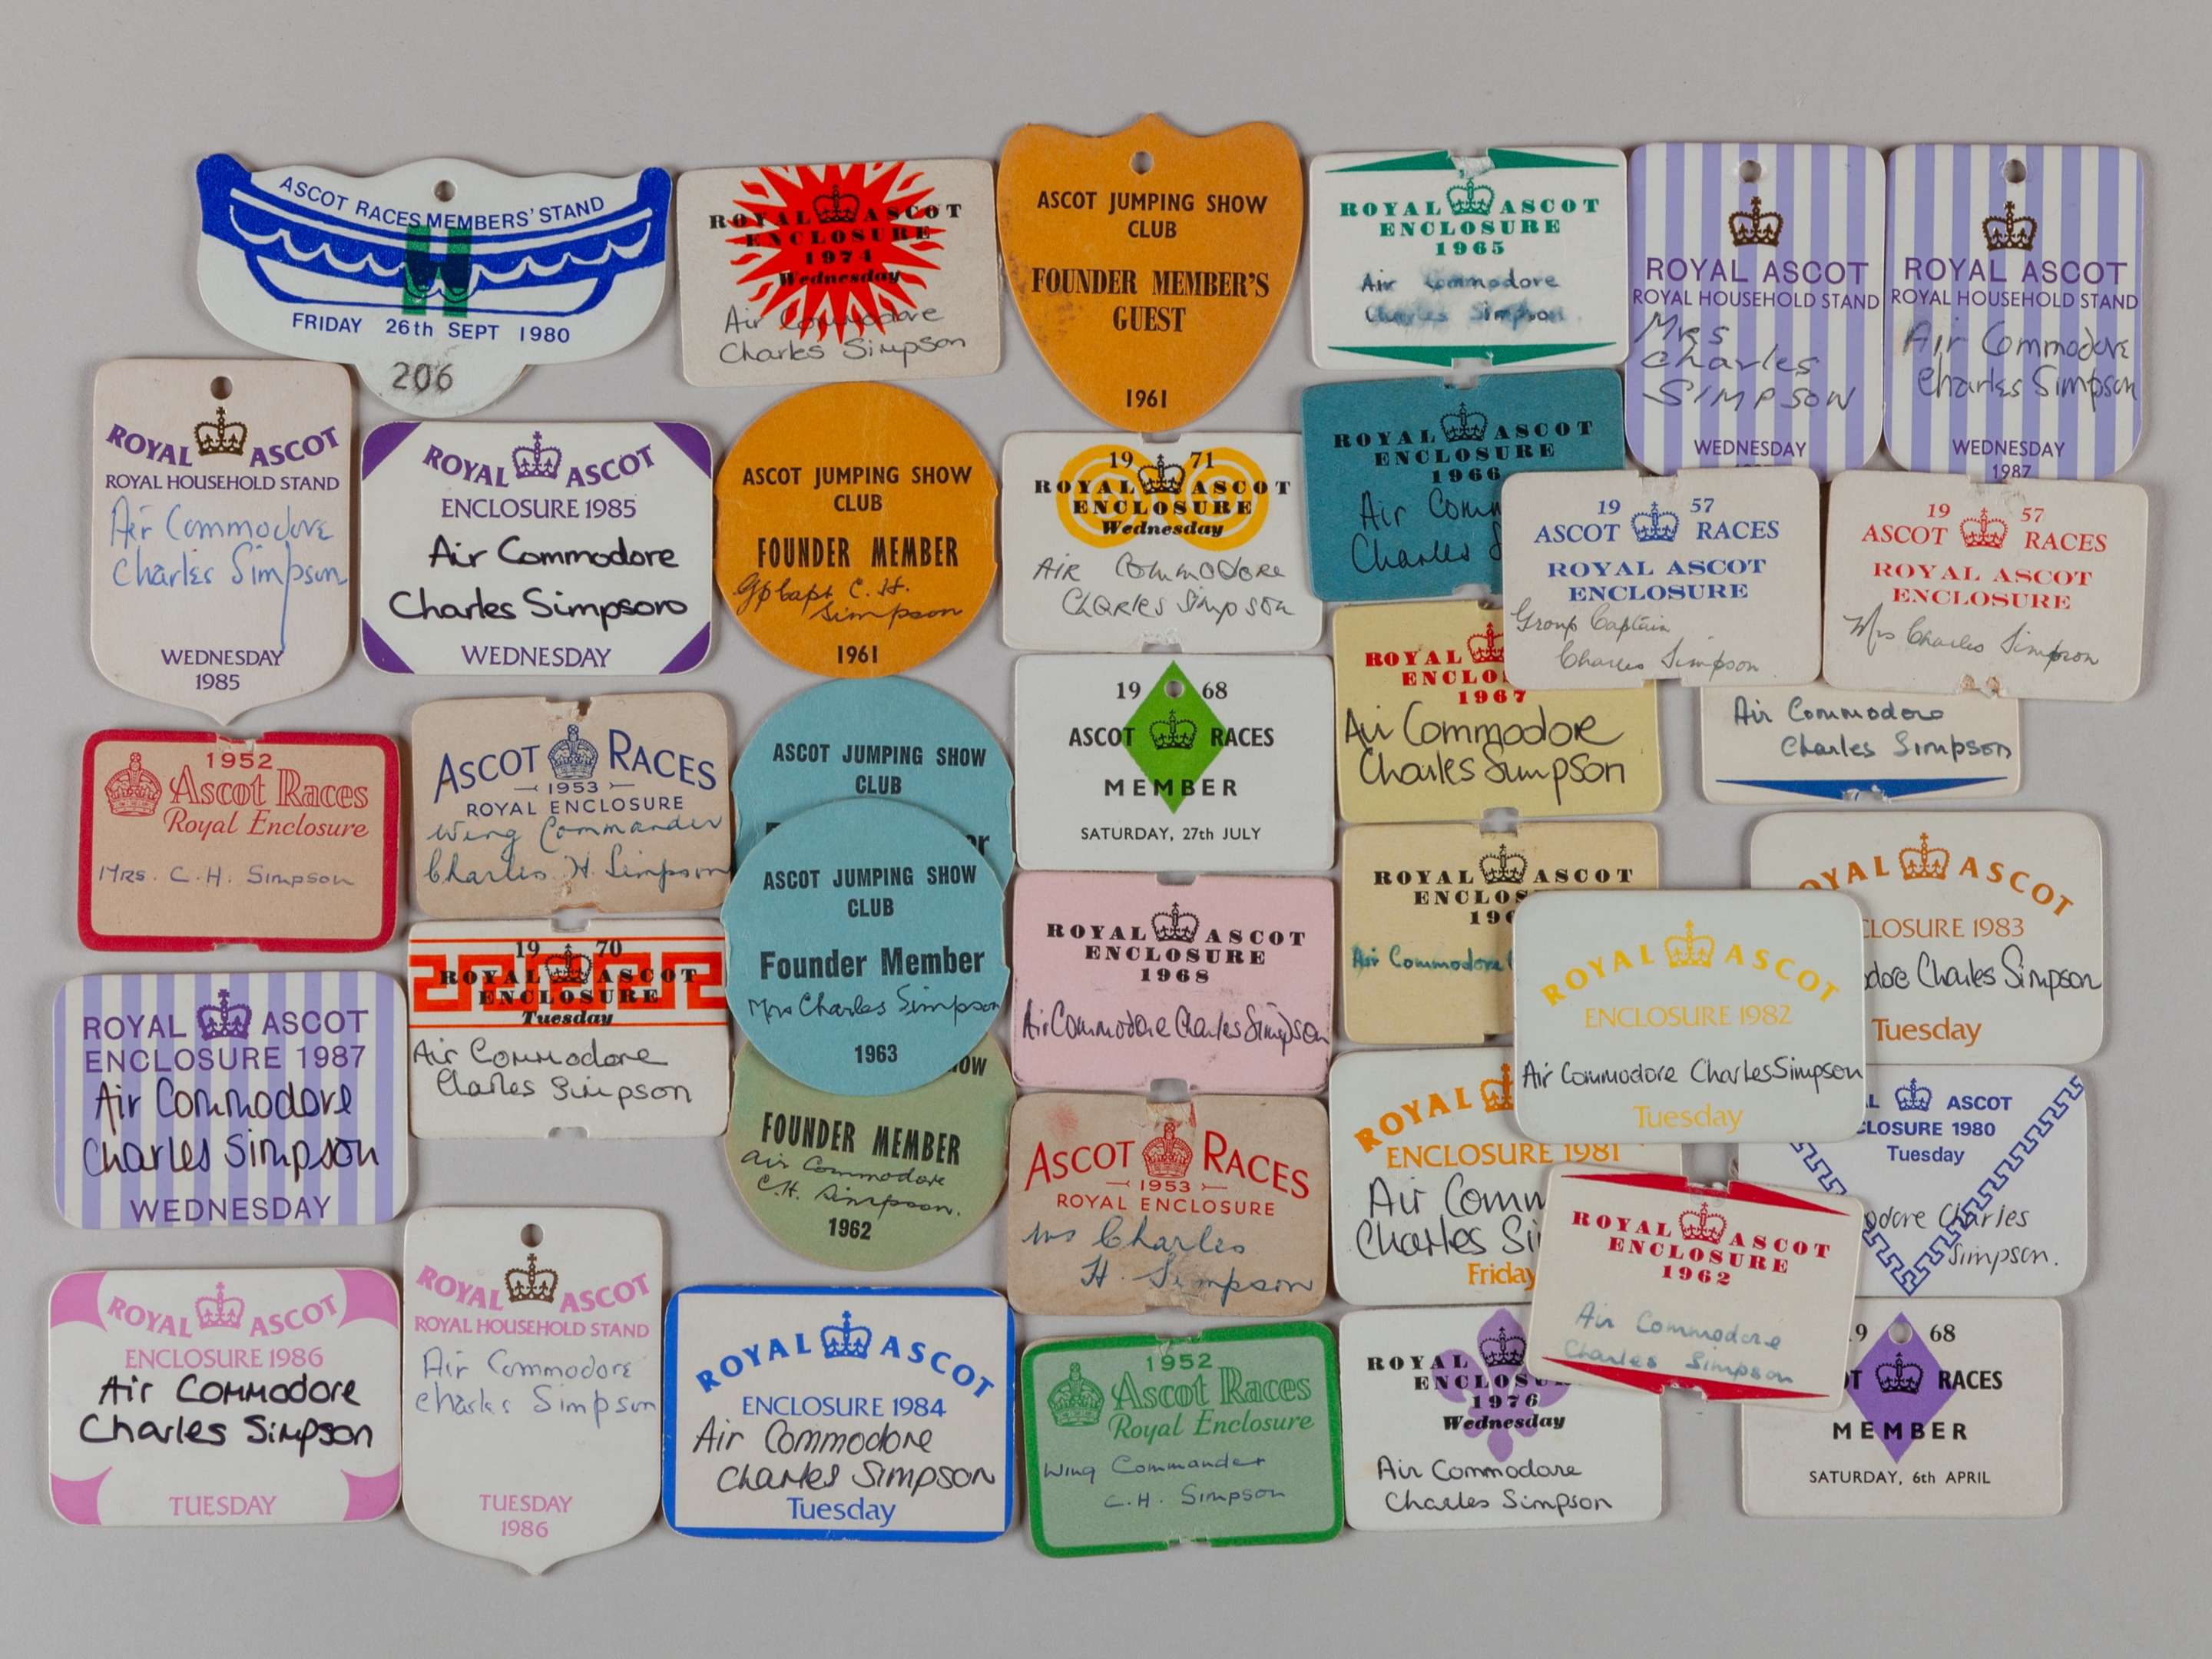 ASCOT RACES MEMBERS' STAND
FRIDAY 26th SEPT 1980
206
ROYAL ASCOT
ENCLOSURE
1974
Wednesday
Air Commodore
Charles Simpson
ASCOT JUMPING SHOW
CLUB
FOUNDER MEMBER'S
GUEST
1961
ROYAL ASCOT
ENCLOSURE
1965
Air Commodore
Charles Simpson
ROYAL ASCOT
ROYAL HOUSEHOLD STAND
Mrs
Charles
SIMPSON
WEDNESDAY
ROYAL ASCOT
ROYAL HOUSEHOLD STAND
Air Commodore
Charles Simpson
WEDNESDAY
1987
ROYAL ASCOT
ROYAL HOUSEHOLD STAND
Air Commodore
Charles Simpson
WEDNESDAY
1985
ROYAL ASCOT
ENCLOSURE 1985
Air Commodore
Charles Simpson
WEDNESDAY
ASCOT JUMPING SHOW
CLUB
FOUNDER MEMBER
Gp Capt C. H.
Simpson
1961
19 71
ROYAL ASCOT
ENCLOSURE
Wednesday
AIR COMMODORE
CHARLES Simpson
ROYAL ASCOT
ENCLOSURE
1966
Air Comm
Charles S
19 57
ASCOT RACES
ROYAL ASCOT
ENCLOSURE
Group Captain
Charles Simpson
19 57
ASCOT RACES
ROYAL ASCOT
ENCLOSURE
Mrs Charles Simpson
ROYAL
ENCLO
1967
Air Commodore
Charles Simpson
Air Commodore
Charles Simpson
1952
Ascot Races
Royal Enclosure
Mrs. C. H. Simpson
ASCOT RACES
1953
ROYAL ENCLOSURE
Wing Commander
Charles H. Simpson
ASCOT JUMPING SHOW
CLUB
19 68
ASCOT RACES
MEMBER
SATURDAY, 27th JULY
ASCOT JUMPING SHOW
CLUB
Founder Member
Mrs Charles Simpson
1963
ROYAL ASCOT
ENCLOS
196
Air Commodore
ROYAL ASCOT
CLOSURE 1983
dore Charles Simpson
Tuesday
ROYAL ASCOT
ENCLOSURE 1982
Air Commodore Charles Simpson
Tuesday
ROYAL ASCOT
ENCLOSURE 1987
Air Commodore
Charles Simpson
WEDNESDAY
19 70
ROYAL ASCOT
ENCLOSURE
Tuesday
Air Commodore
Charles Simpson
OW
FOUNDER MEMBER
Air Commodore
C.H. Simpson.
1962
ROYAL ASCOT
ENCLOSURE
1968
Air Commodore Charles Simpson
ASCOT RACES
1953
ROYAL ENCLOSURE
Mrs Charles
H. Simpson
ROYAL
ENCLOSURE 1981
Air Comm
Charles Si
Friday
L ASCOT
CLOSURE 1980
Tuesday
odore Charles
Simpson.
ROYAL ASCOT
ENCLOSURE
1962
Air Commodore
Charles Simpson
ROYAL ASCOT
ENCLOSURE 1986
Air Commodore
Charles Simpson
TUESDAY
ROYAL ASCOT
ROYAL HOUSEHOLD STAND
Air Commodore
Charles Simpson
TUESDAY
1986
ROYAL ASCOT
ENCLOSURE 1984
Air Commodore
Charles Simpson
Tuesday
1952
Ascot Races
Royal Enclosure
Wing Commander
C.H. Simpson
ROYAL
ENCLOSU
1976
Wednesday
Air Commodore
Charles Simpson
9 68
OT RACES
MEMBER
SATURDAY, 6th APRIL